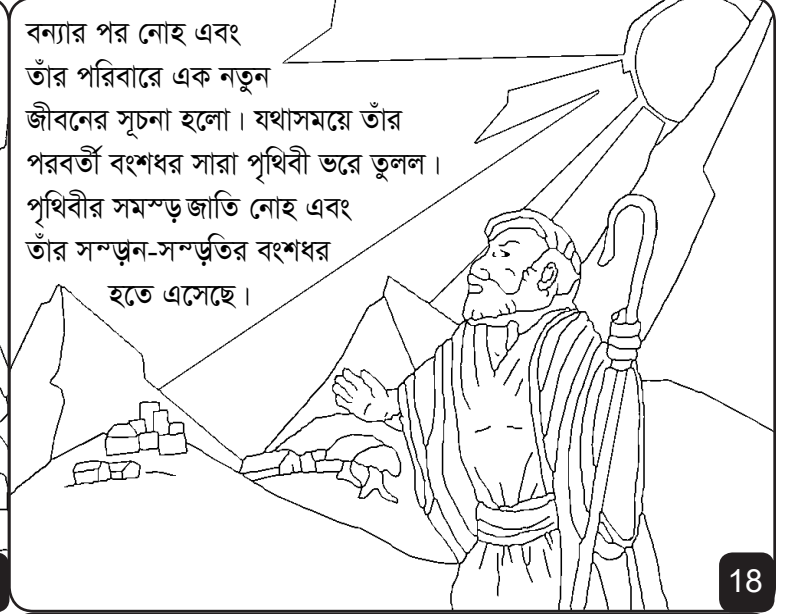 বন্যার পর নোহ এবং
তাঁর পরিবারে এক নতুন
জীবনের সূচনা হলো। যথাসময়ে তাঁর
পরবর্তী বংশধর সারা পৃথিবী ভরে তুলল।
পৃথিবীর সমস্ড় জাতি নোহ এবং
তাঁর সন্ড়ান-সন্ড়তির বংশধর
হতে এসেছে।
18